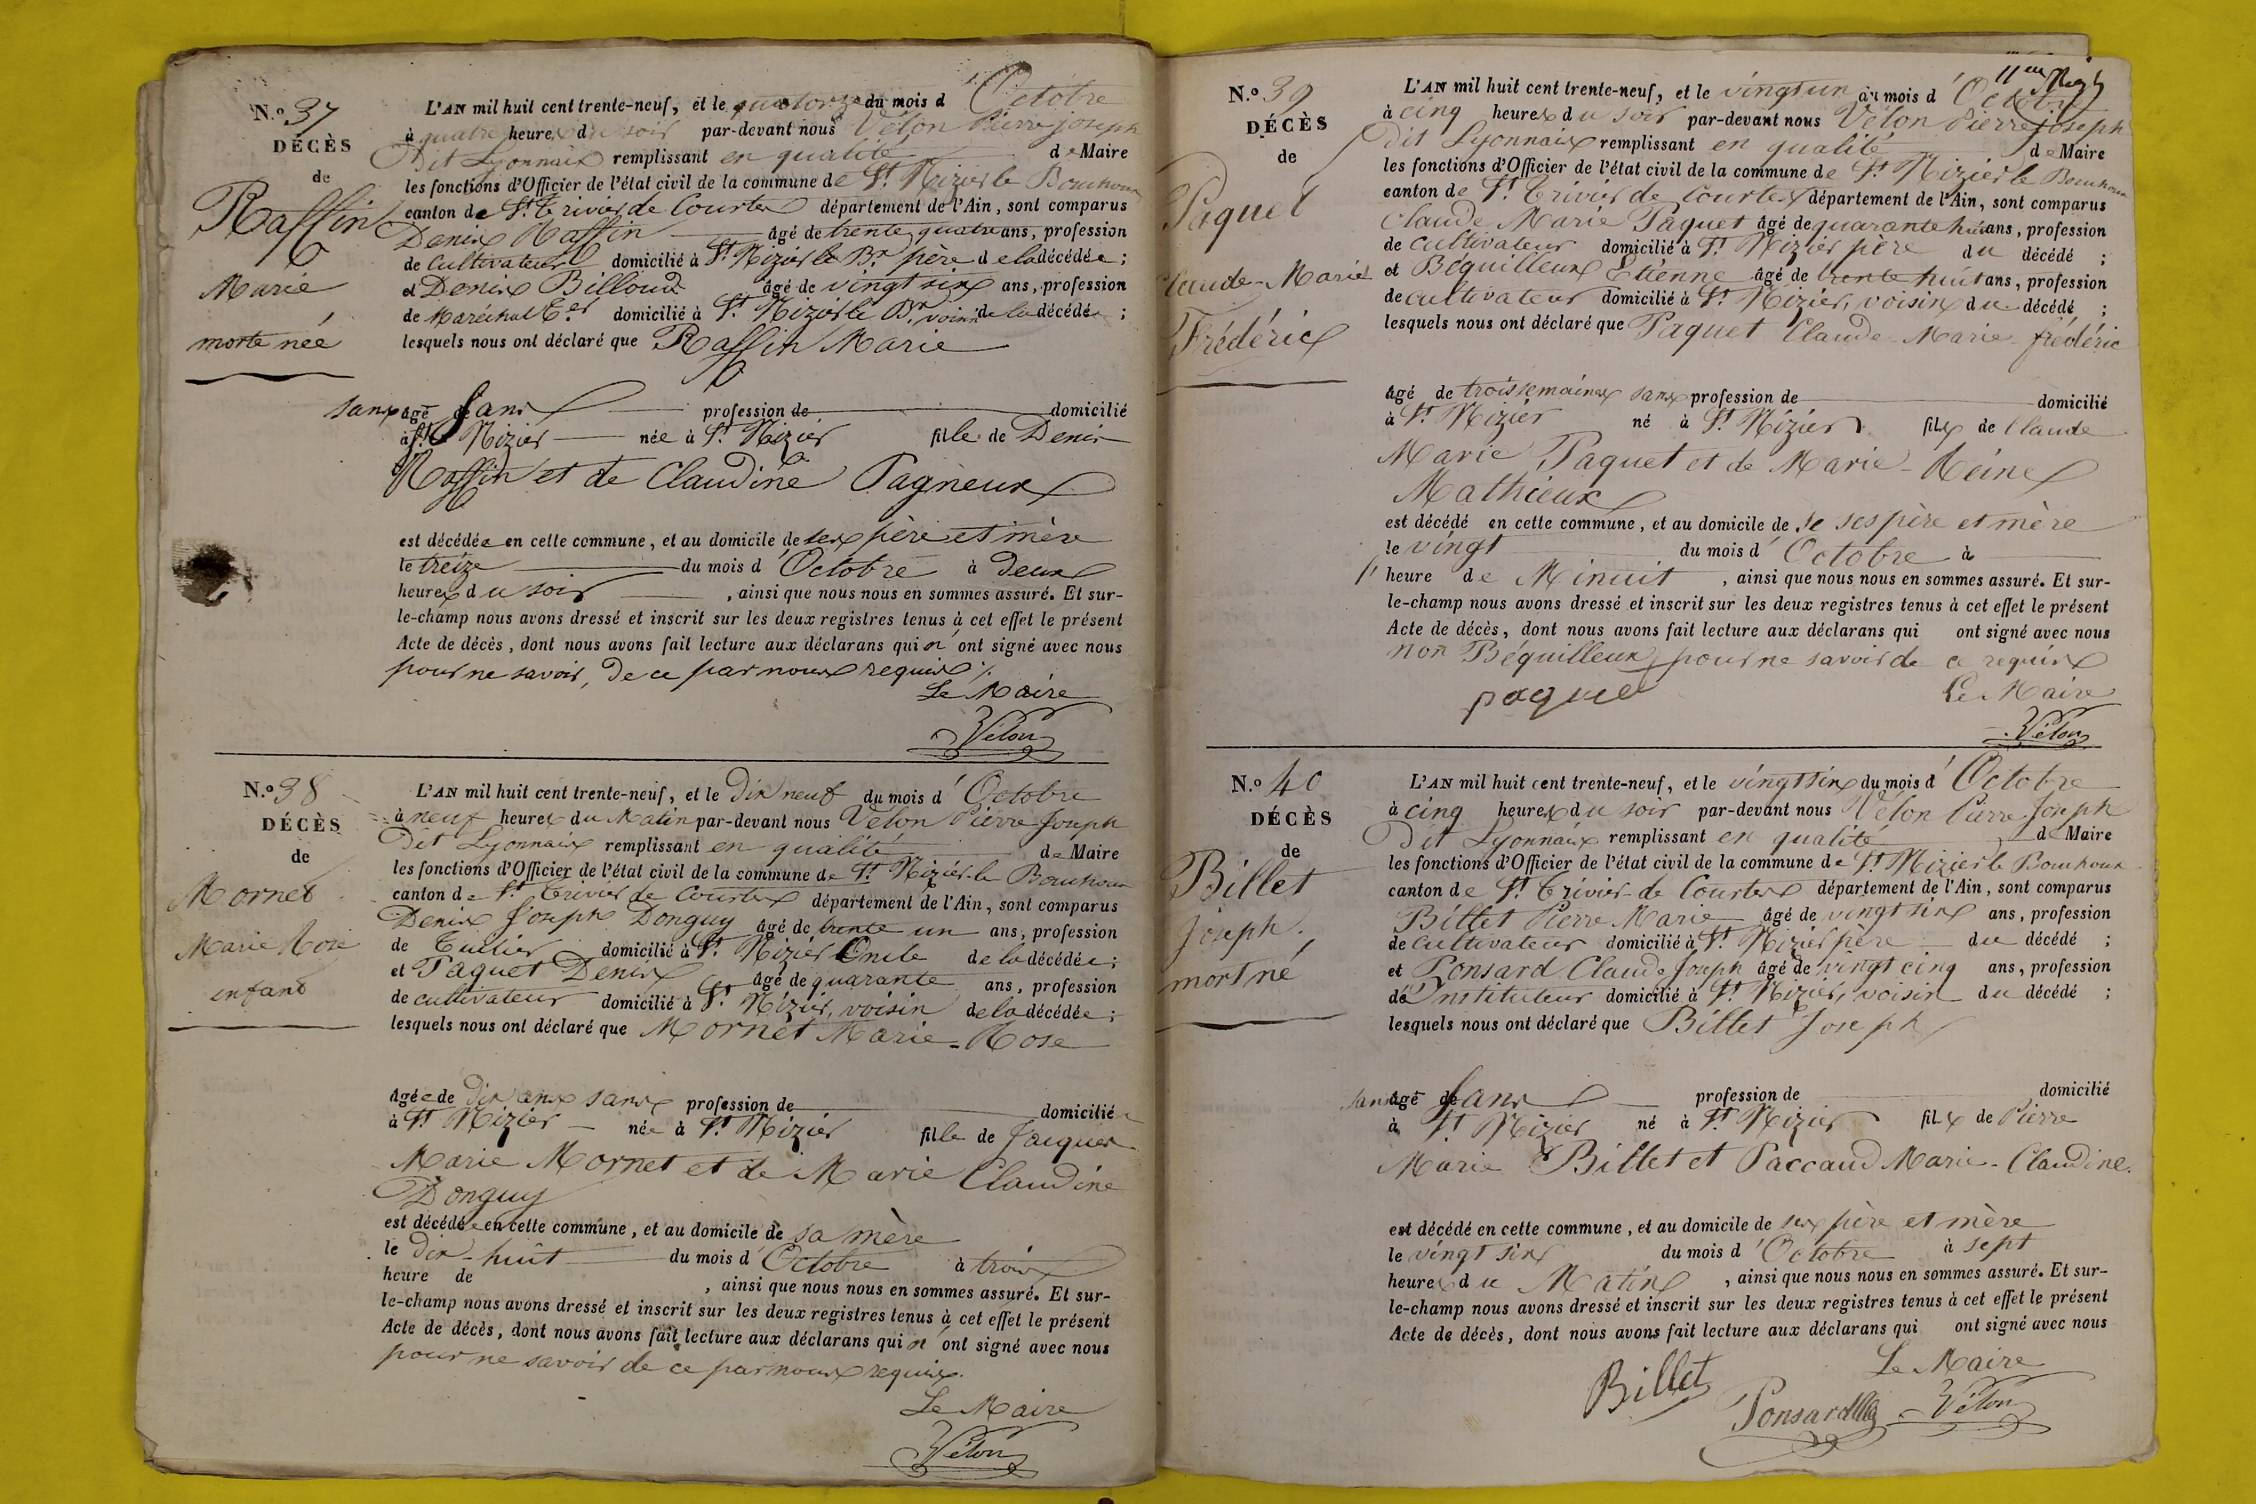 N.o 37
DÉCÈS
de
Raffin
Marie
morte née
L'AN mil huit cent trente-neuf, et le quatorze du mois d Octobre
à quatre heures du soir par-devant nous Vélon Pierre joseph
Dit Lyonnaix remplissant en qualité de Maire
les fonctions d'Officier de l'état civil de la commune de St. Nizier le Bouchoux
canton de St. Trivier de Courtes département de l'Ain, sont comparus
Denix Raffin âgé de trente quatre ans, profession
de Cultivateur domicilié à St. Nizier le Bx. père de la décédée ;
et Denix Billoud âgé de vingt six ans, profession
de Maréchal domicilié à St. Nizier le Bx. voisin de la décédée ;
lesquels nous ont déclaré que Raffin Marie
sans âgé de ans profession de domicilié
à St. Nizier née à St. Nizier fille de Denis
Raffin et de Claudine Pagneux
est décédée en cette commune, et au domicile de ses père et mère
le treize du mois d'Octobre à deux
heures du soir, ainsi que nous nous en sommes assuré. Et sur-
le-champ nous avons dressé et inscrit sur les deux registres tenus à cet effet le présent
Acte de décès, dont nous avons fait lecture aux déclarans qui n'ont signé avec nous
pour ne savoir, de ce par nous requis ;.
Le Maire
Vélon
N.o 38
DÉCÈS
de
Mornet
Marie Rose
enfant
L'AN mil huit cent trente-neuf, et le Dix neuf du mois d'Octobre
à neuf heures du Matin par-devant nous Vélon Pierre Joseph
Dit Lyonnaix remplissant en qualité de Maire
les fonctions d'Officier de l'état civil de la commune de St. Nizier le Bouchoux
canton de St. Trivier de Courtes département de l'Ain, sont comparus
Denix Joseph Donguy âgé de trente un ans, profession
de Tuilier domicilié à St. Nizier Oncle de la décédée ;
et Paquet Denix âgé de quarante ans, profession
de cultivateur domicilié à St. Nizier, voisin de la décédée ;
lesquels nous ont déclaré que Mornet Marie-Rose
âgée de dix ans sans profession de domiciliée
à St. Nizier née à St. Nizier fille de Jacques
Marie Mornet et de Marie Claudine
Donguy
est décédée en cette commune, et au domicile de sa mère
le dix-huit du mois d'Octobre à trois
heure de , ainsi que nous nous en sommes assuré. Et sur-
le-champ nous avons dressé et inscrit sur les deux registres tenus à cet effet le présent
Acte de décès, dont nous avons fait lecture aux déclarans qui n'ont signé avec nous
pour ne savoir de ce par nous requis.
Le Maire
Vélon
N.o 39
DÉCÈS
de
Paquet
Claude-Marie
Frédéric
L'AN mil huit cent trente-neuf, et le vingt un du mois d'Octobre
à cinq heures du soir par-devant nous Vélon Pierre joseph
Dit Lyonnaix remplissant en qualité de Maire
les fonctions d'Officier de l'état civil de la commune de St. Nizier le Bouchoux
canton de St. Trivier de Courtes département de l'Ain, sont comparus
Claude Marie Paquet âgé de quarante huit ans, profession
de Cultivateur domicilié à St. Nizier père du décédé ;
et Béquilleux Etienne âgé de trente huit ans, profession
de cultivateur domicilié à St. Nizier, voisin du décédé ;
lesquels nous ont déclaré que Paquet Claude-Marie-frédéric
âgé de trois semaines sans profession de domicilié
à St. Nizier né à St. Nizier fils de Claude
Marie Paquet et de Marie-Reine
Mathieux
est décédé en cette commune, et au domicile de de ses père et mère
le vingt du mois d'Octobre à
heure de Minuit, ainsi que nous nous en sommes assuré. Et sur-
le-champ nous avons dressé et inscrit sur les deux registres tenus à cet effet le présent
Acte de décès, dont nous avons fait lecture aux déclarans qui ont signé avec nous
non Béquilleux pour ne savoir de ce requis
Le Maire
paque
Vélon
N.o 40
DÉCÈS
de
Billet
Joseph.
mort né
L'AN mil huit cent trente-neuf, et le vingt six du mois d'Octobre
à cinq heures du soir par-devant nous Vélon Pierre Joseph
Dit Lyonnaix remplissant en qualité de Maire
les fonctions d'Officier de l'état civil de la commune de St. Nizier le Bouchoux
canton de St. Trivier de Courtes département de l'Ain, sont comparus
Billet Pierre Marie âgé de vingt six ans, profession
de cultivateur domicilié à St. Nizier père du décédé ;
et Ponsard Claude Joseph âgé de vingt cinq ans, profession
d'Instituteur domicilié à St. Nizier, voisin du décédé ;
lesquels nous ont déclaré que Billet Joseph
sans âgé de ans profession de domicilié
à St. Nizier né à St. Nizier fils de Pierre
Marie Billet et Paccaud Marie-Claudine.
est décédé en cette commune, et au domicile de ses père et mère
le vingt six du mois d'Octobre à sept
heures du Matin, ainsi que nous nous en sommes assuré. Et sur-
le-champ nous avons dressé et inscrit sur les deux registres tenus à cet effet le présent
Acte de décès, dont nous avons fait lecture aux déclarans qui ont signé avec nous
Le Maire
Billet
Ponsard
Vélon